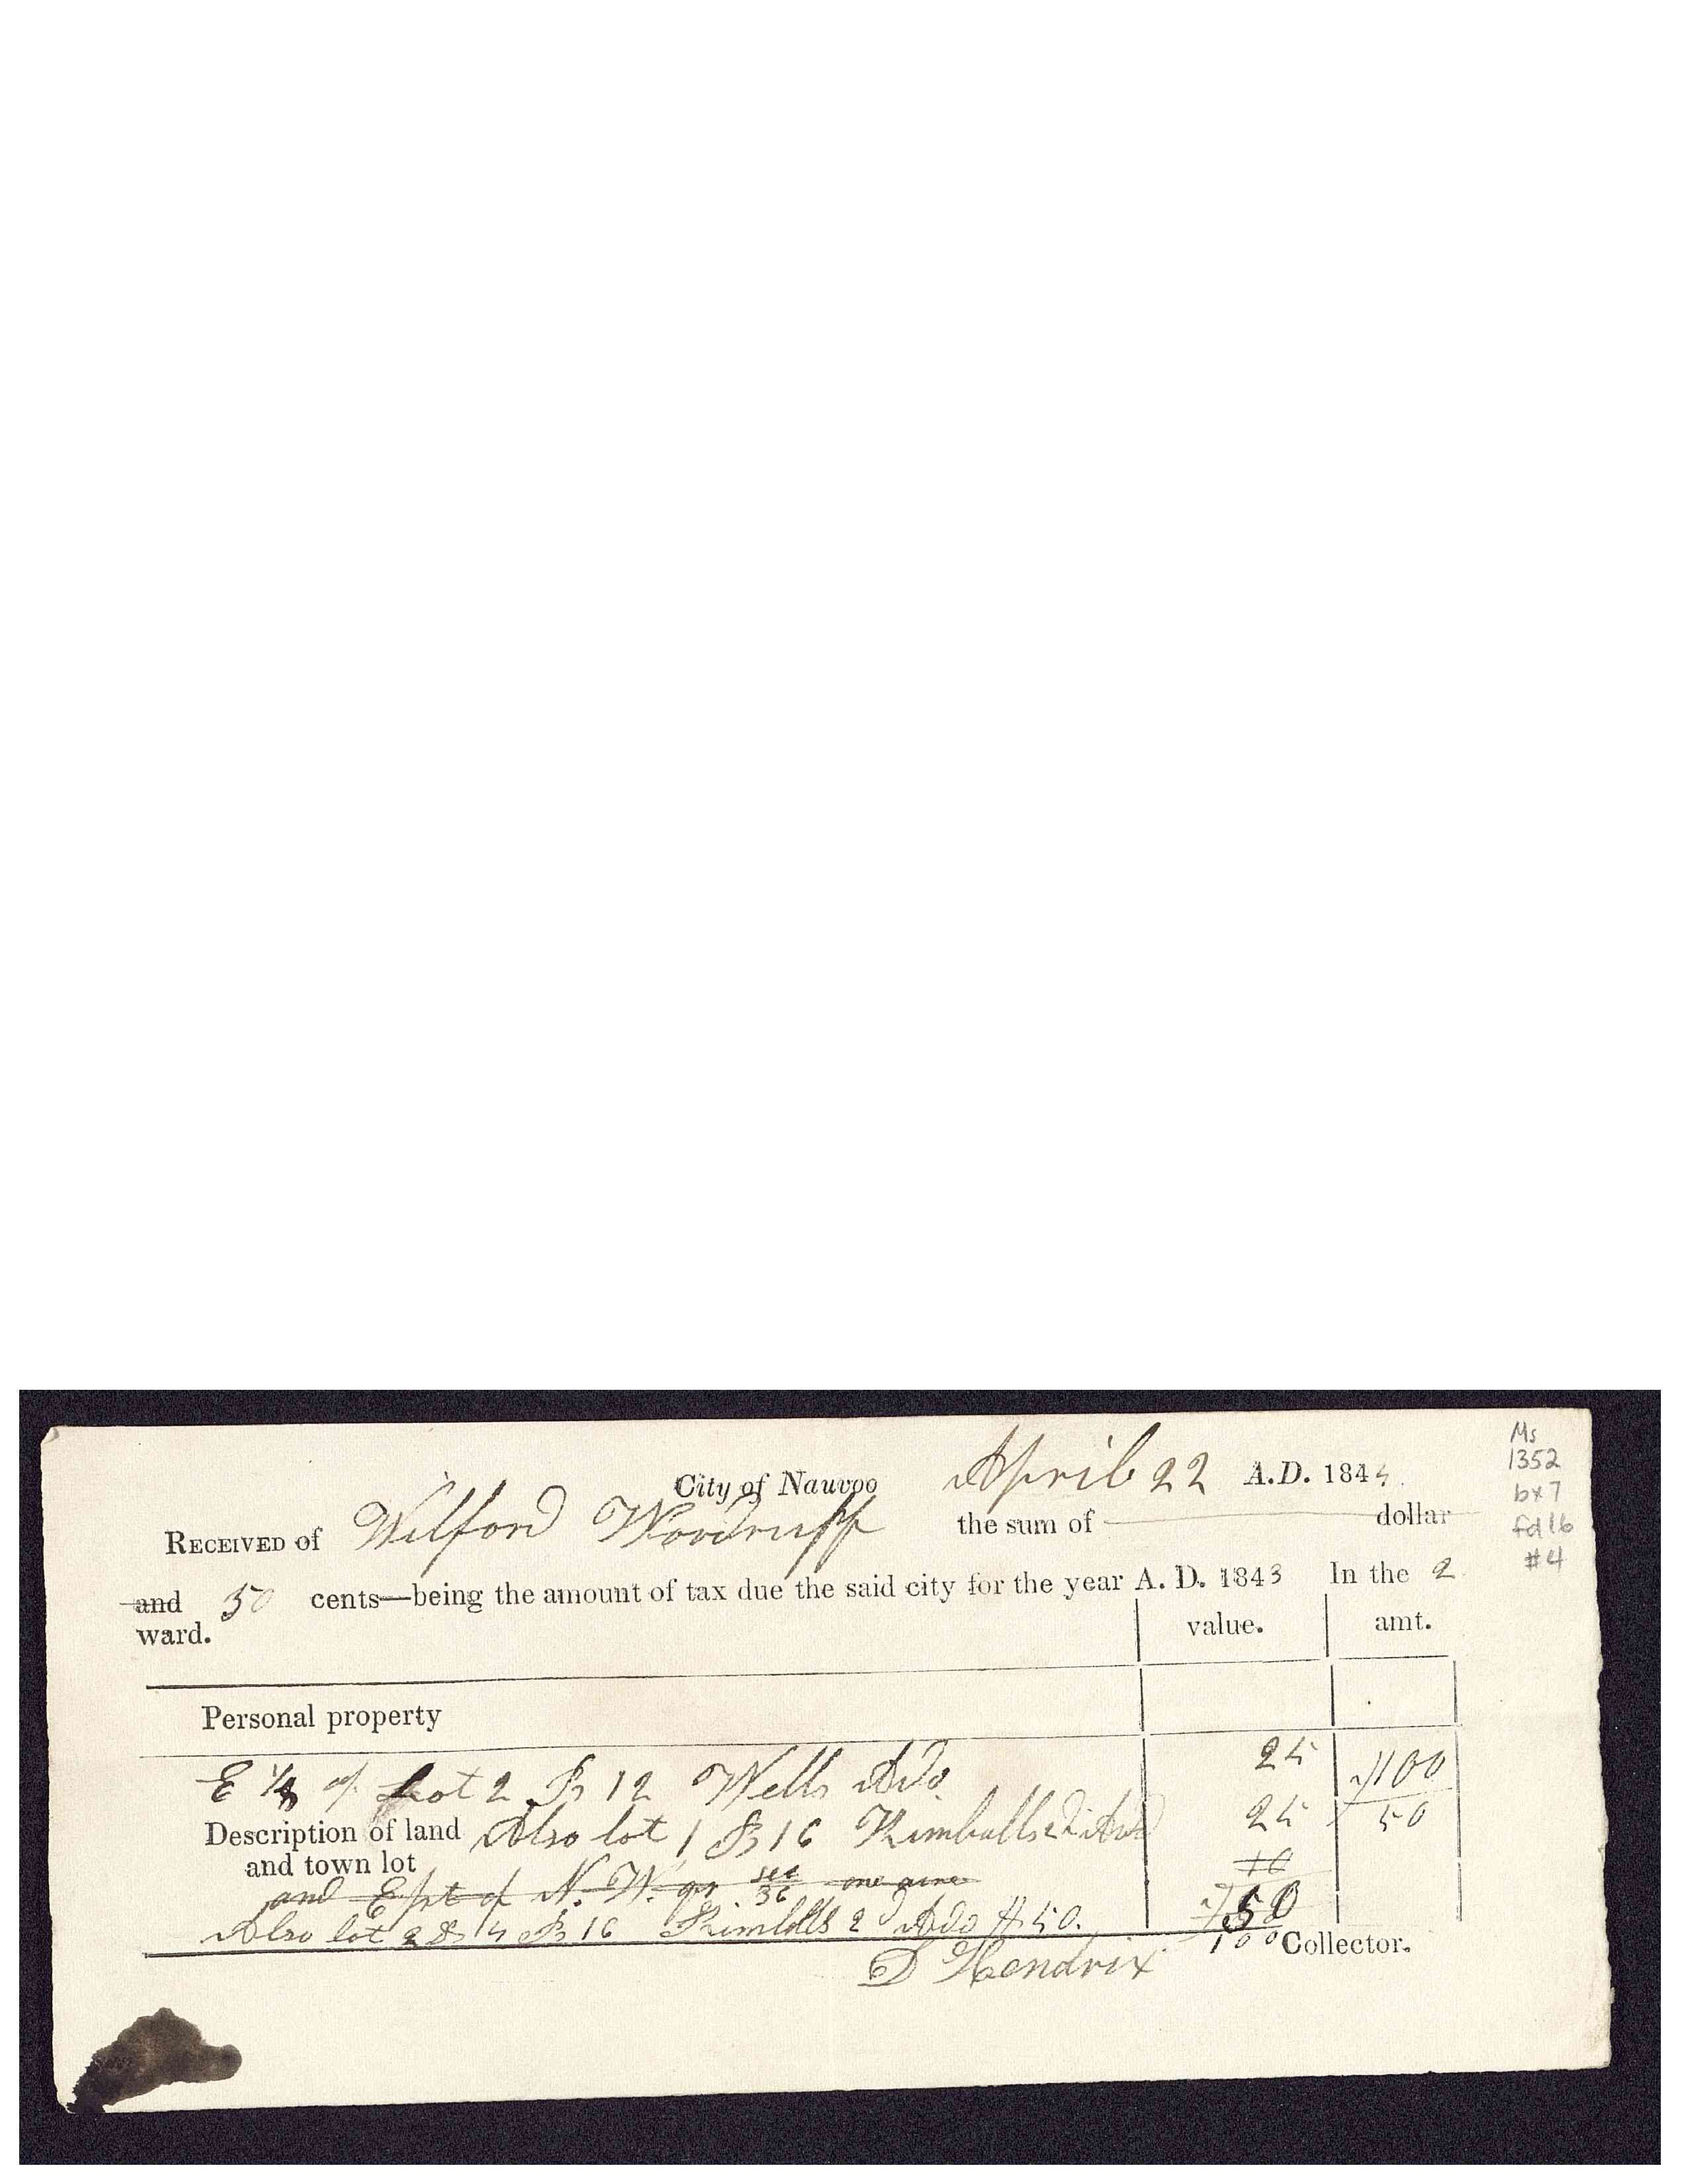 City of Nauvoo April 22 A.D. 1844
RECEIVED of Wilford Woodruff the sum of dollar
and 50 cents—being the amount of tax due the said city for the year A. D. 1843 In the 2
ward. value. amt.
Personal property
E 1/4 of Lot 2 B 12 Wells Add. 25 100
Description of land Also lot 1 B 16 Kimballs 2d Add 25 50
and town lot 10
and E pt of N. W. qr sec 36 one acre
Also lot 2 & 4 B 16 Kimbolls 2d Add $50. 50
D Hendrix 100 Collector.
Ms
1352
bx 7
fd 16
#4